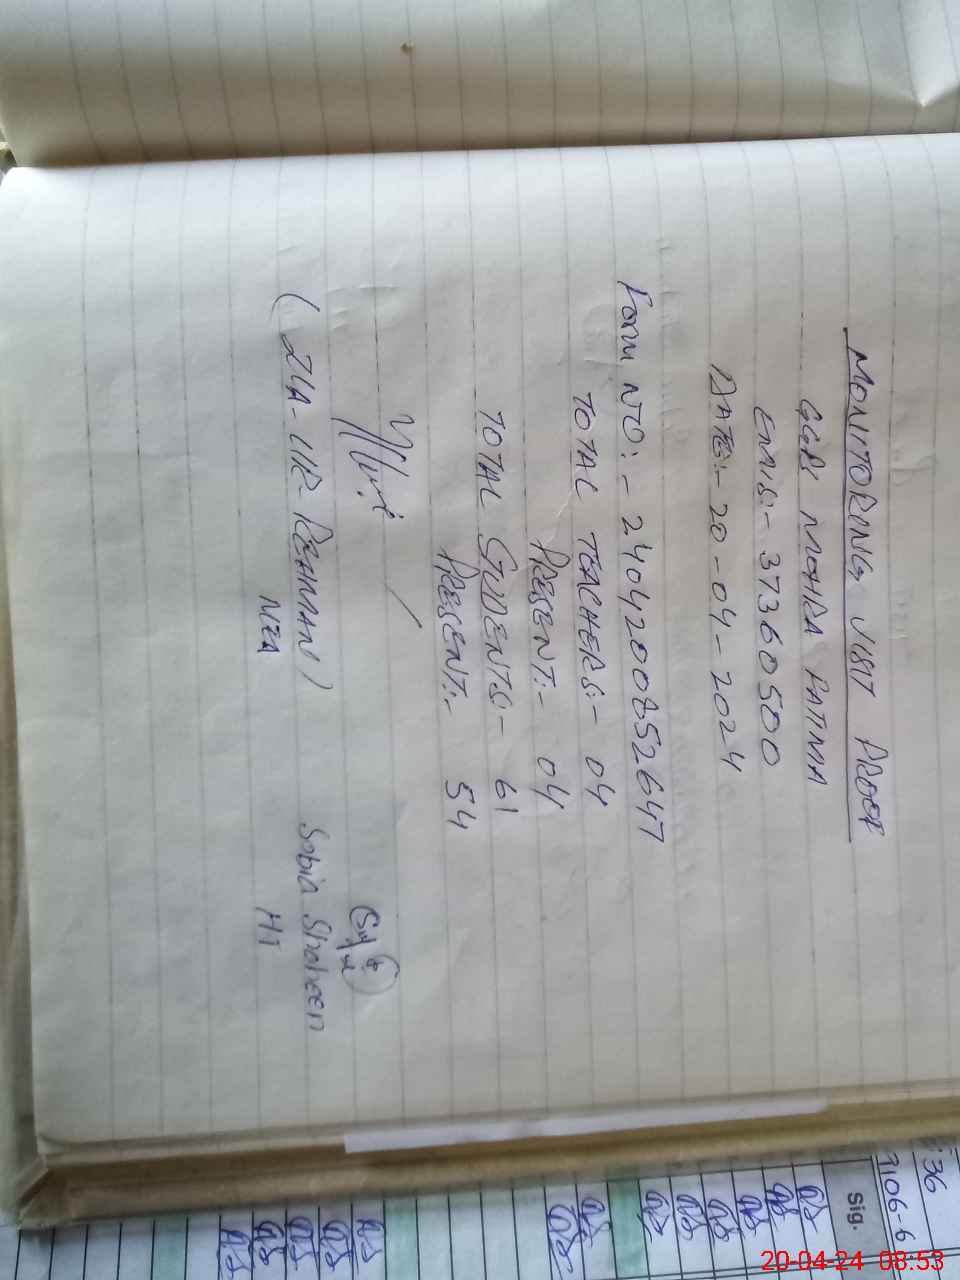 MONITORING VISIT PROOF
GGPS MOHRA FATIMA
EMIS:- 37360500
DATE:- 20-04-2024
Form NO:- 2404200852647
TOTAL TEACHERS:- 04
PRESENT:- 04
TOTAL STUDENTS:- 61
PRESENT:- 54
(ZIA-UR-REHMAN)
MEA
Sobia Shaheen
HT
36
7106-6
Sig.
20-04-24 08:53